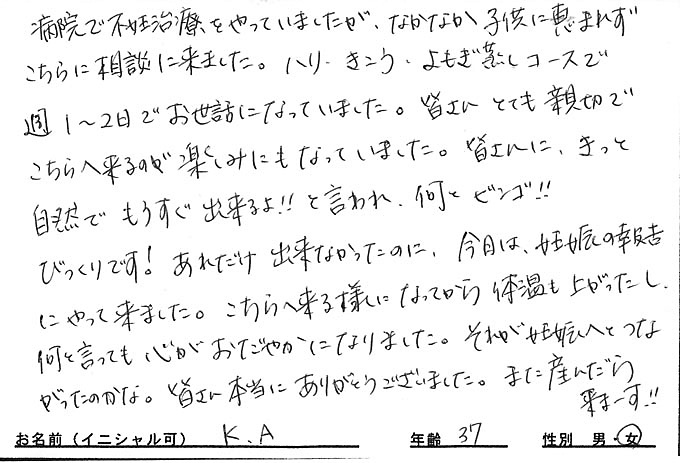 病院で不妊治療をやっていましたが、なかなか子供に恵まれず
こちらに相談に来ました。ハリ・きこう・よもぎ蒸しコースで
週1〜2日でお世話になっていました。皆さんとても親切で
こちらへ来るのが楽しみにもなっていました。皆さんに、きっと
自然でもうすぐ出来るよ!!と言われ、何とビンゴ!!
びっくりです!あれだけ出来なかったのに、今日は、妊娠の報告
にやって来ました。こちらへ来る様になってから体温も上がったし、
何と言っても心がおだやかになりました。それが妊娠へとつな
がったのかな。皆さん本当にありがとうございました。また産んだら
来まーす!!
お名前（イニシャル可） K.A 年齢 37 性別 男・女